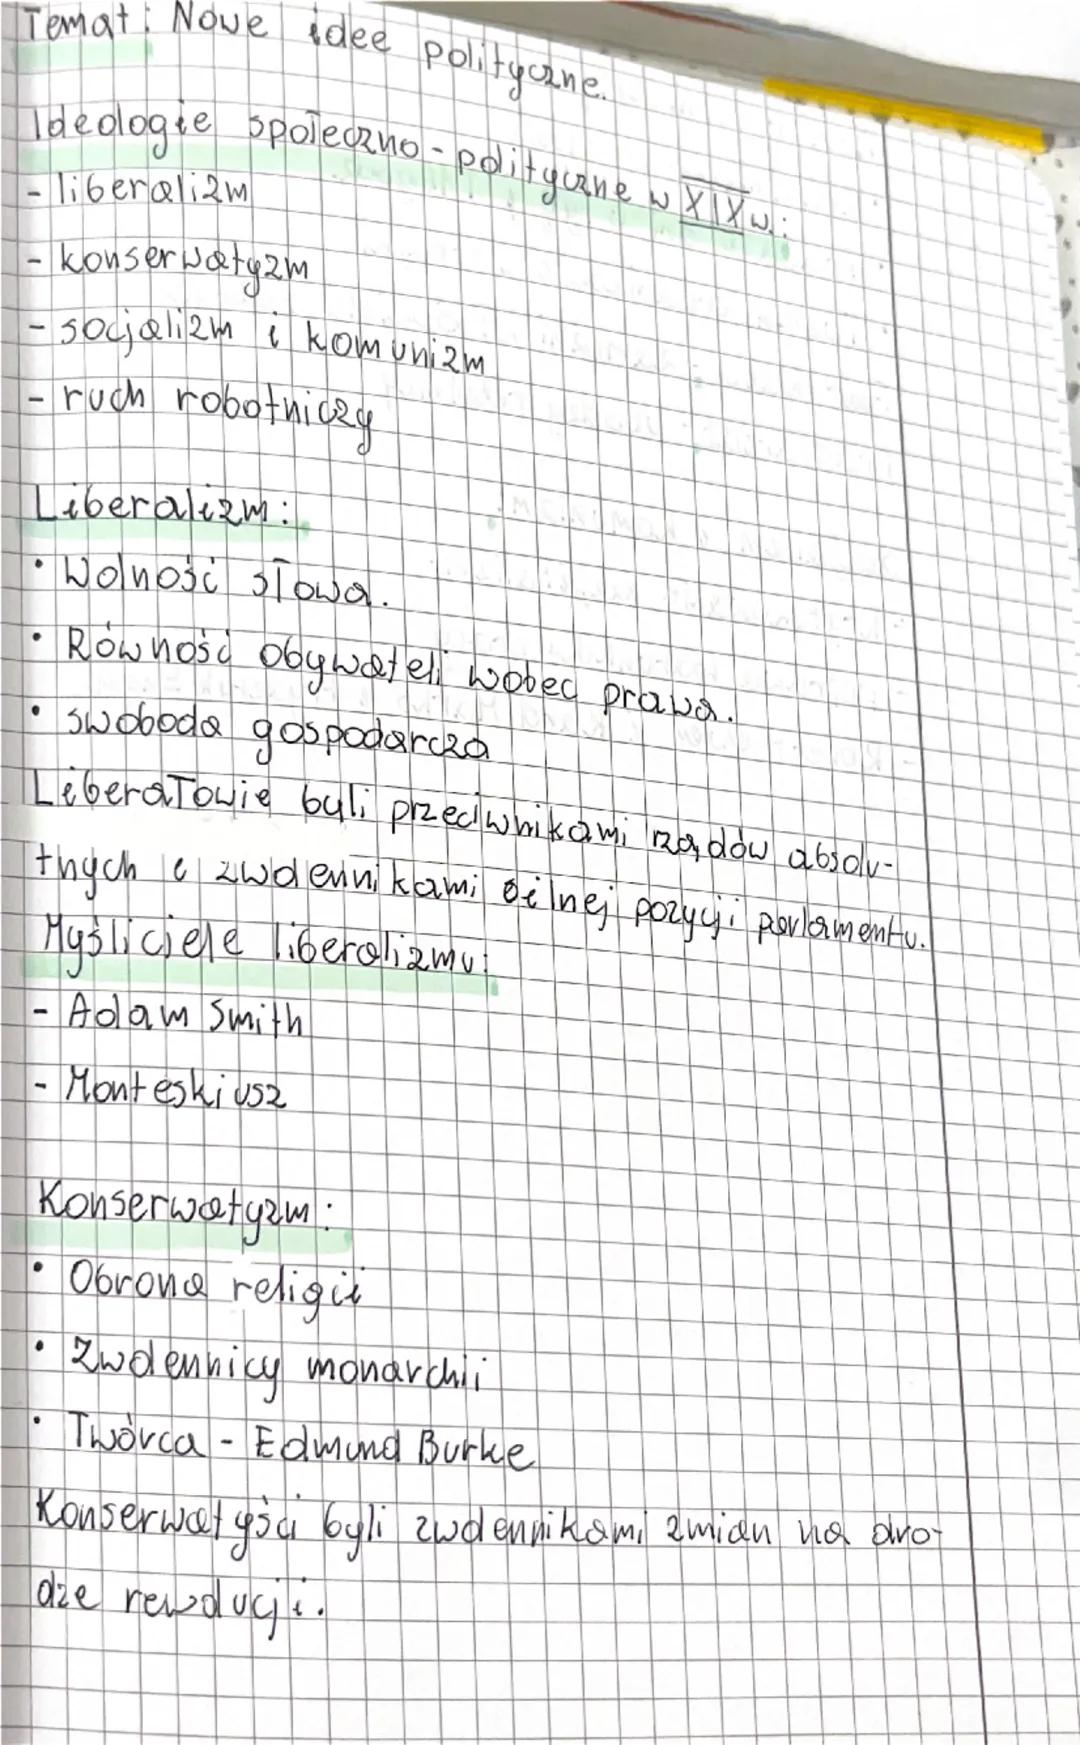 Temat: Nowe idee polityczne.
Ideologie społeczno-polityczne w XIXw.:
- liberalizm
- konserwatyzm
- socjalizm i komunizm
- ruch robotniczy
Liberalizm:
• Wolność słowa.
• Równość obywateli wobec prawa.
• swoboda gospodarcza
Liberałowie byli przeciwnikami rządów absolu-
tnych i zwolennikami silnej pozycji parlamentu.
Myśliciele liberalizmu:
- Adam Smith
- Monteskiusz
Konserwatyzm:
• Obrona religii
• Zwolennicy monarchii
• Twórca - Edmund Burke
Konserwatyści byli zwolennikami zmian na dro-
dze rewolucji.